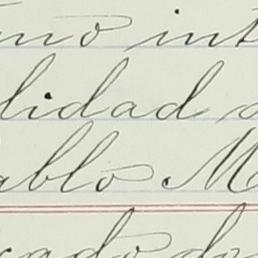 ino int
lidad d
ablo M
cado de